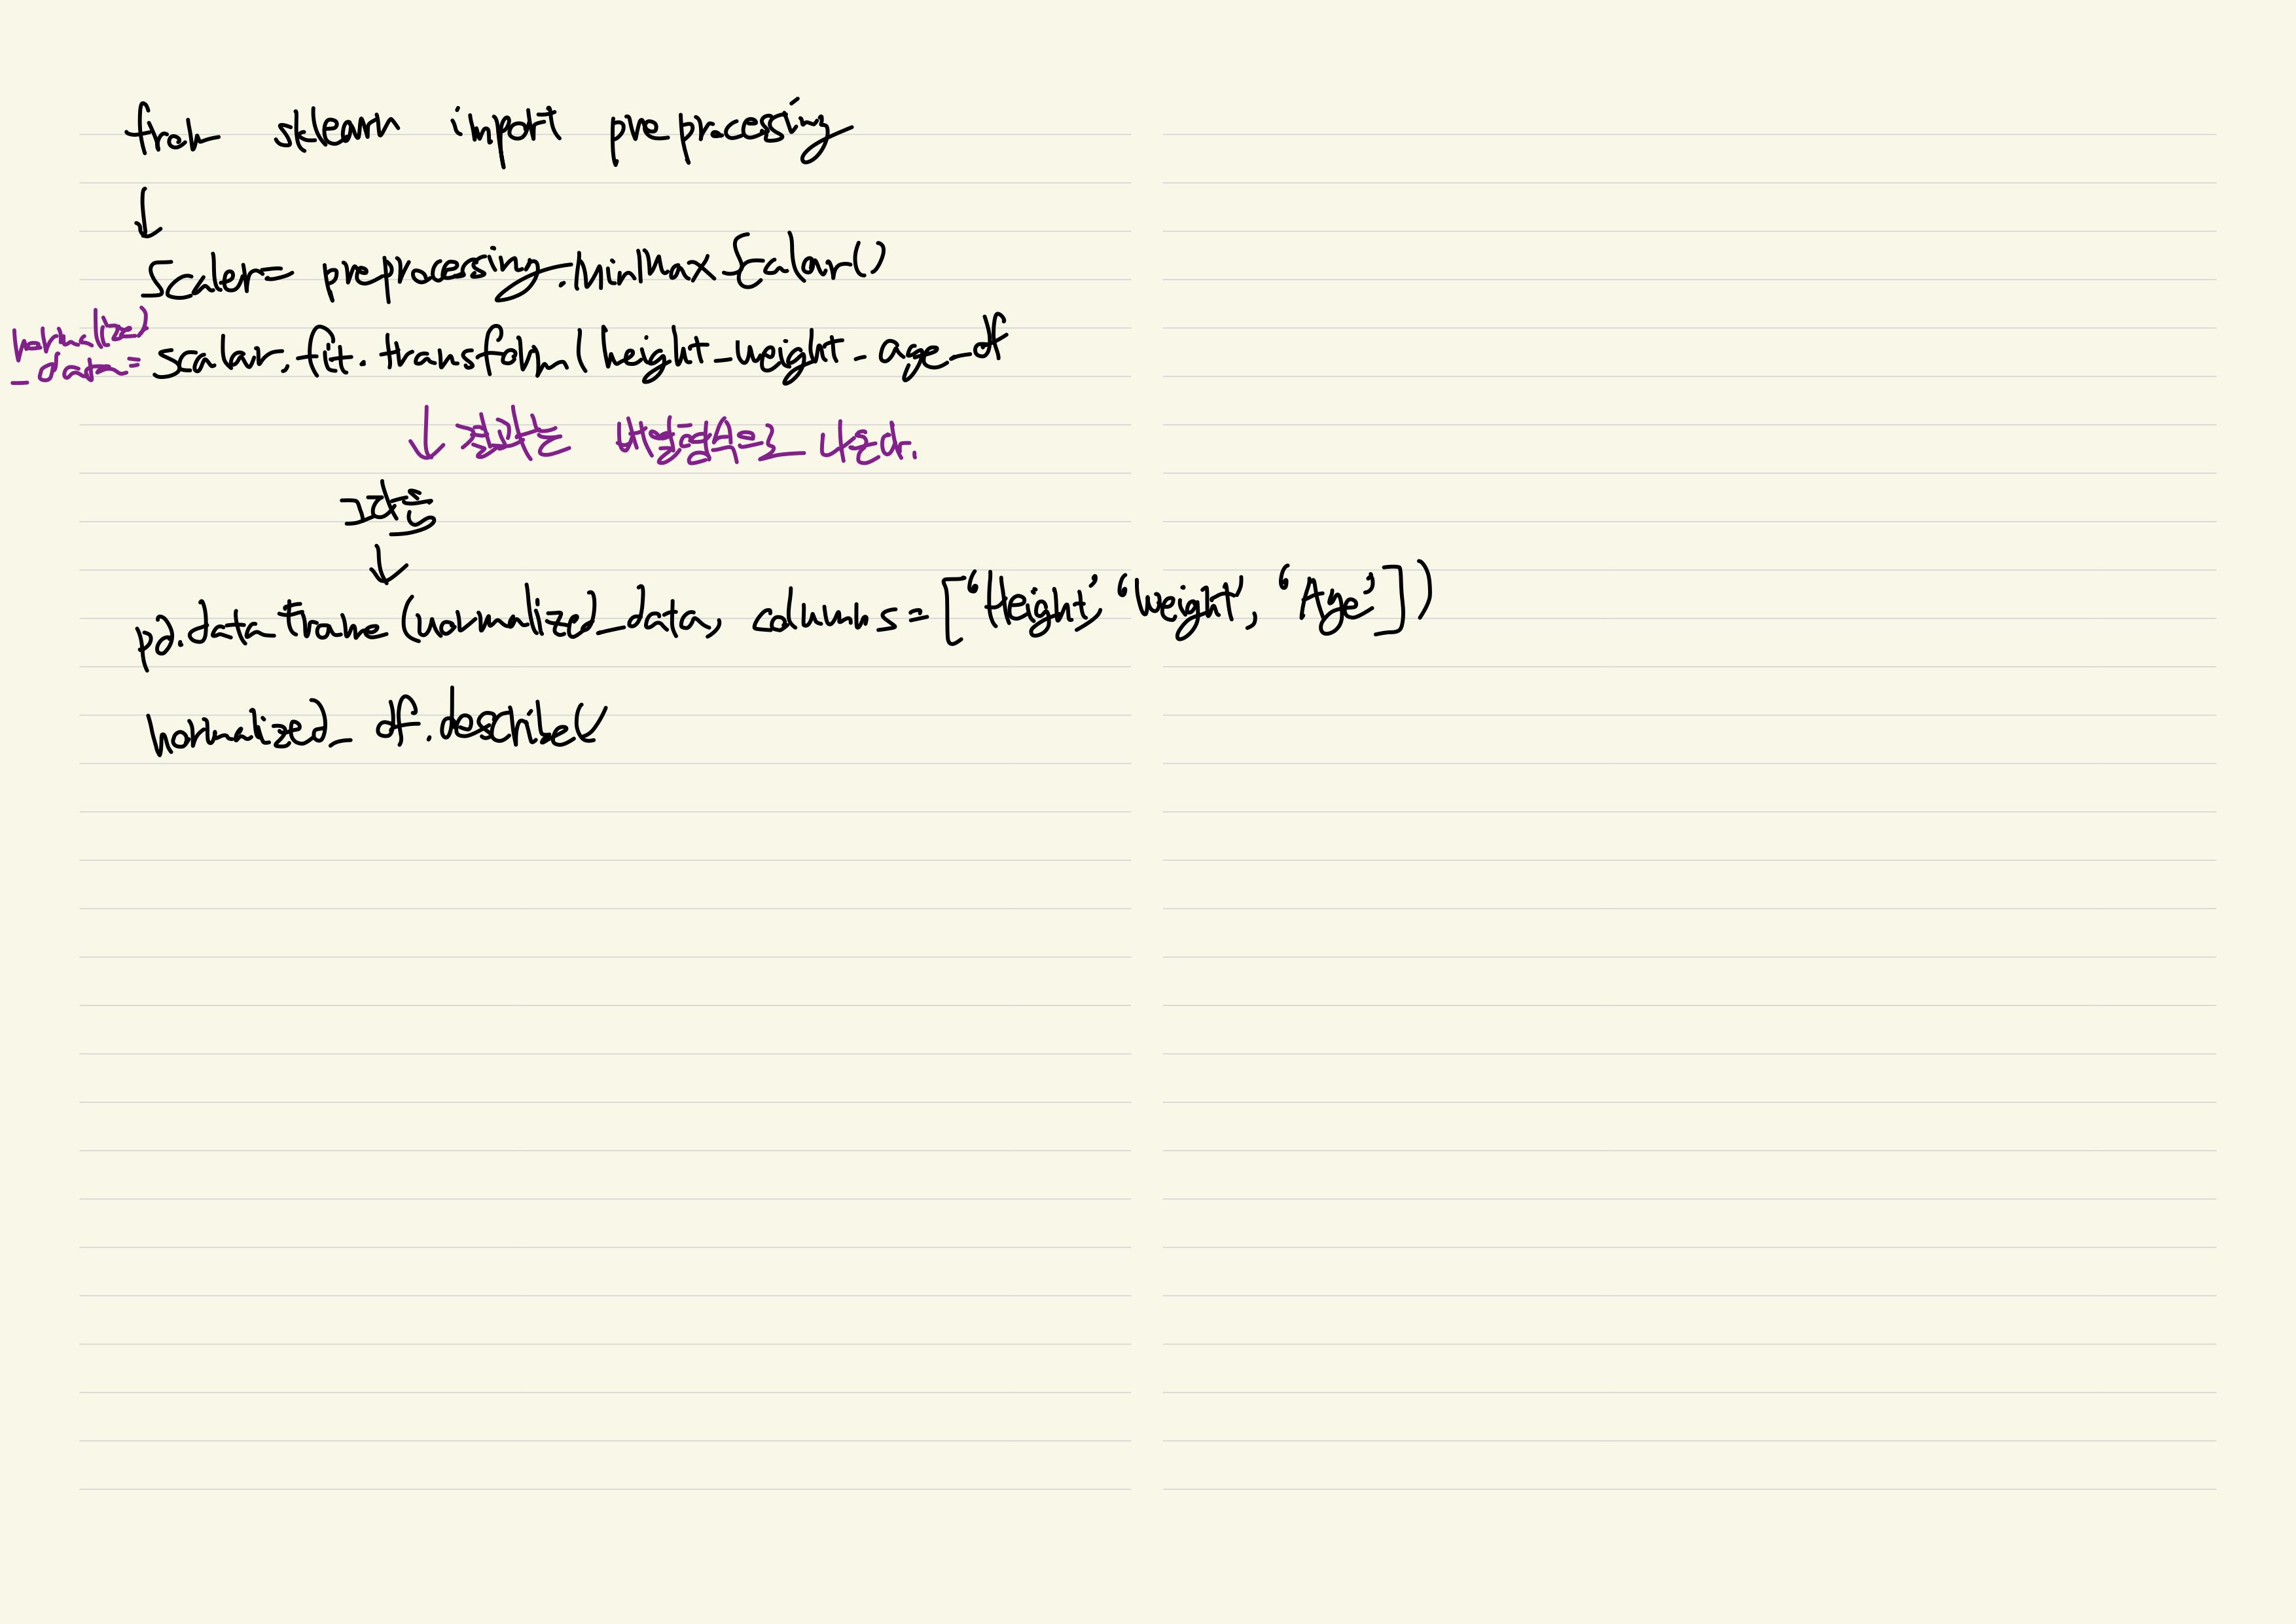 from sklearn import preprocessing
↓
Scaler = preprocessing.MinMaxScalar()
normalized
_data = scalar.fit.transform(height_weight_age_df
↓ 결과는 배열형식으로 나온다.
그다음
↓
pd.dataframe(normalized_data, columns=["Height', 'Weight', 'Age'])
normalized_df.describe()